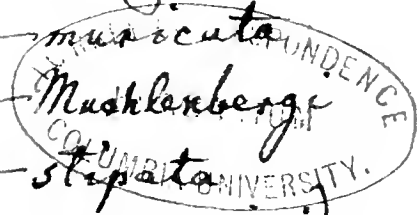 — muricata
— Muehlenbergi
— stipata
COLUMBIA UNIVERSITY.